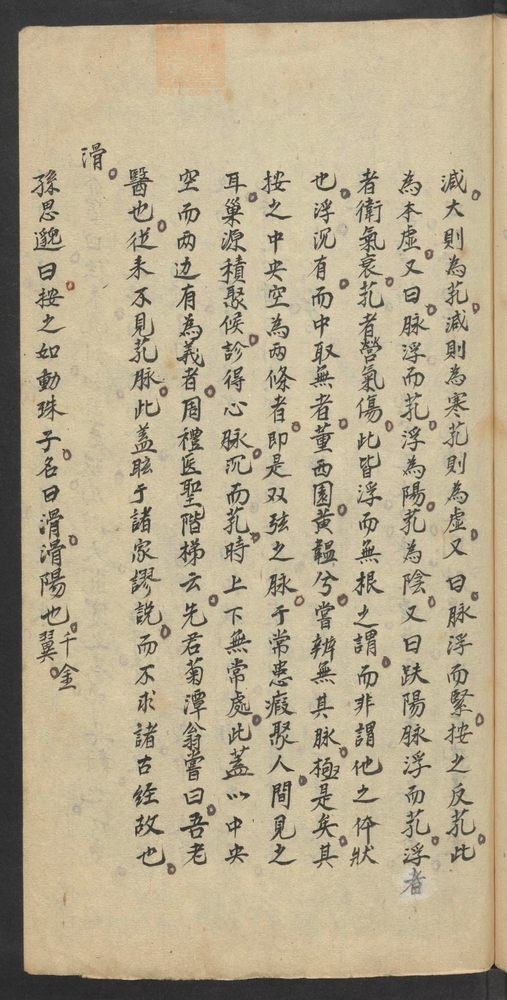 減大則為芤減則為寒芤則為虛又曰脉浮而緊按之反芤此
為本虛又曰脉浮而芤浮為陽芤為陰又曰趺陽脉浮而芤浮者
者衛氣衰芤者營氣傷此皆浮而無根之謂而非謂他之体狀
也浮沉有而中取無者董西園黃韞兮嘗辨無其脉極是矣其
按之中央空為两條者即是双弦之脉于常患瘕聚人間見之
耳巢源積聚候診得心脉沉而芤時上下無常處此蓋以中央
空而两边有為義者周禮医聖階梯云先君菊潭翁嘗曰吾老
醫也従来不見芤脉此蓋眩于諸家謬説而不求諸古経故也
滑
孫思邈曰按之如動珠子名曰滑滑陽也千金翼